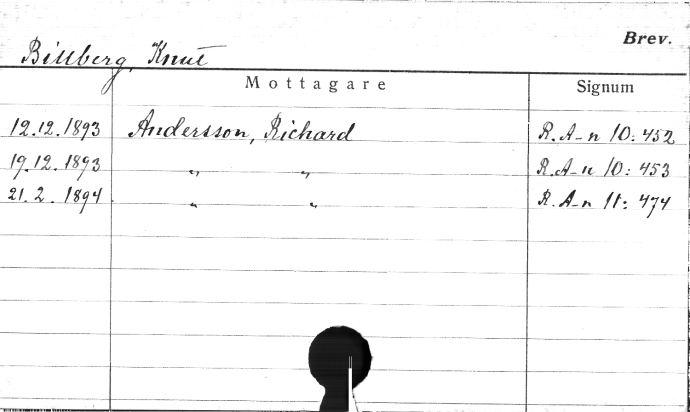 Brev.
Billberg, Knut
Mottagare Signum
12.12.1893 Andersson, Richard R. A-n 10: 452
19.12.1893 " " R. A-n 10: 453
21. 2. 1894 " " R. A-n 11: 474